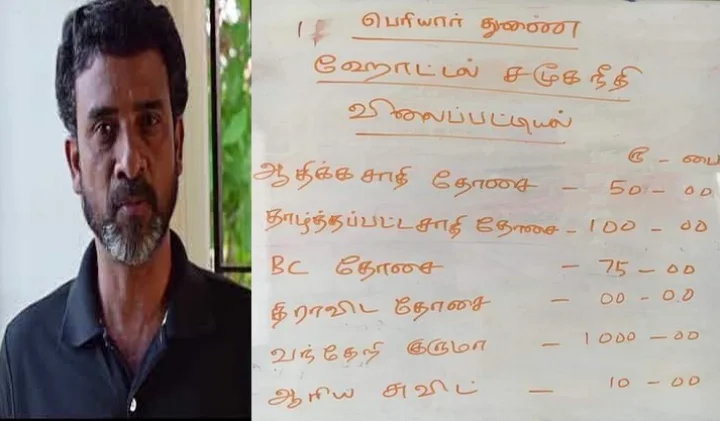 பெரியார் துணை
ஹோட்டல் சமூகநீதி
விலைப்பட்டியல்
ரூ - பை
ஆதிக்கசாதி தோசை - 50 - 00
தாழ்த்தப்பட்டசாதி தோசை - 100 - 00
BC தோசை - 75 - 00
திராவிட தோசை - 00 - 00
வந்தேறி குருமா - 1000 - 00
ஆரிய சுவிட் - 10 - 00